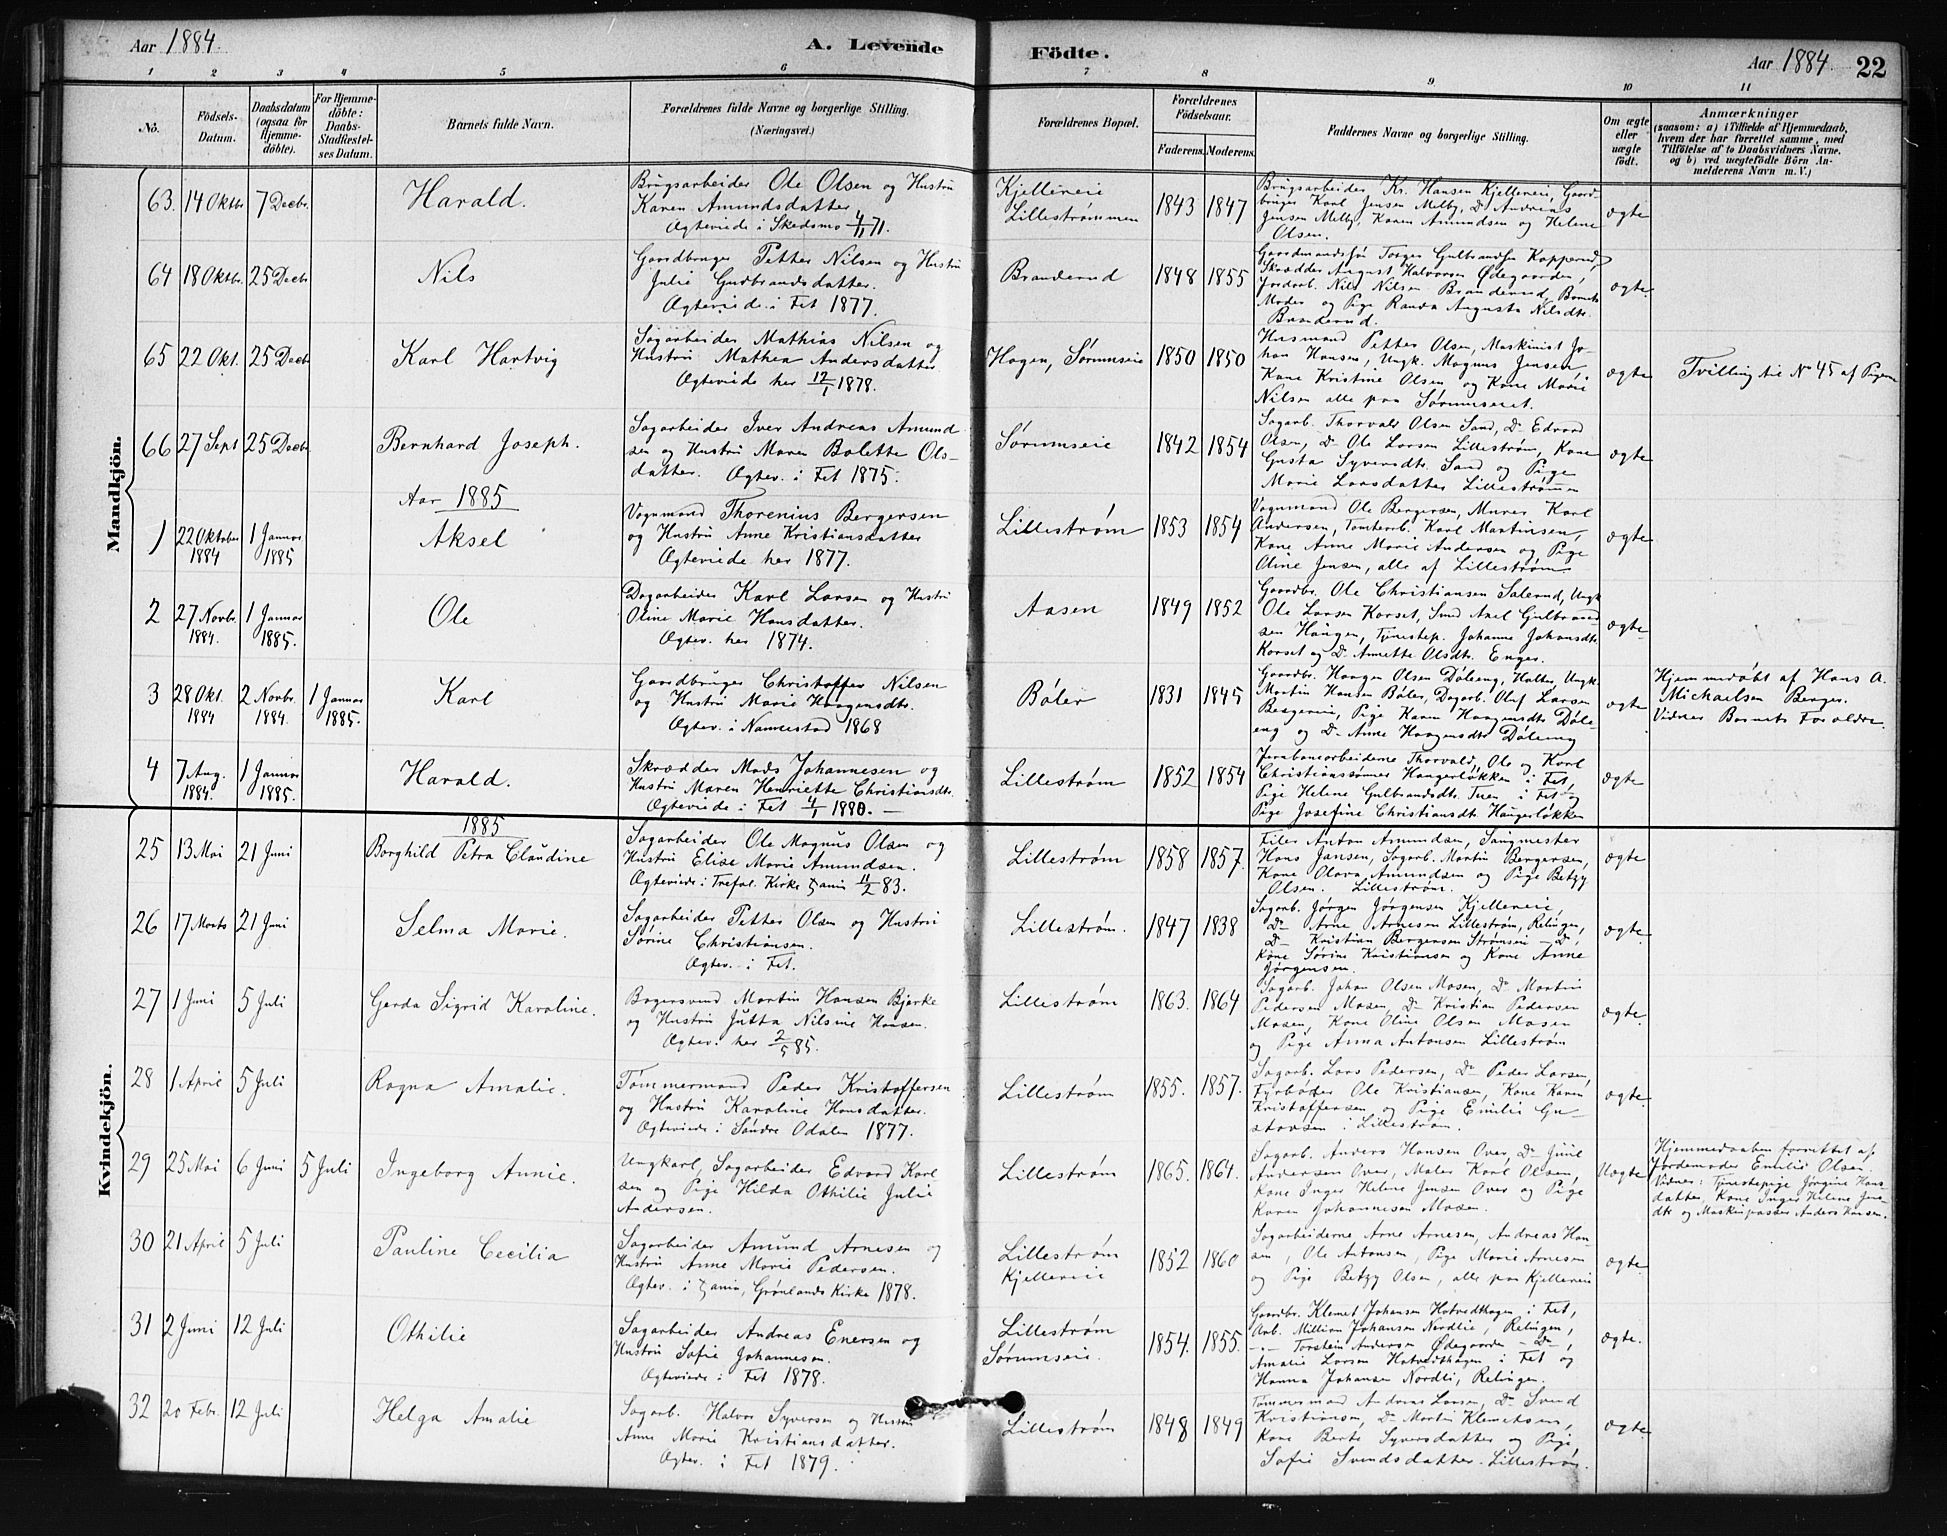 Aar 1884.
A. Levende
Födte.
Aar 1884.
22
1 2 3 4 5 6 7 8 9 10 11
No.
Födsels-
Datum.
Daabsdatum
(ogsaa for
Hjemme-
döbte).
For Hjemme-
döbte:
Daabs-
Stadfæstel-
ses Datum.
Barnets fulde Navn.
Forældrenes fulde Navne og borgerlige Stilling.
(Næringsvei.)
Forældrenes Bopæl.
Forældrenes
Födselsaar.
Faderens. Moderens.
Faddernes Navne og borgerlige Stilling.
Om ægte
eller
uægte
födt.
Anmærkninger
(saasom: a) i Tilfælde af Hjemmedaab,
hvem der har forrettet samme, med
Tilföielse af to Daabsvidners Navne.
og b) ved uægtefödte Börn An-
melderens Navn m.V.)
Mandkjön.
63. 14 Oktbr 7 Decbr.
Harald.
Brugsarbeider Ole Olsen og Hustru
Karen Amundsdatter
Ægteviede i Skedsmo 4/11 71.
Kjellereie
Lillestrømmen
1843 1847
Brugsarbeider Kr. Hansen Kjellereie, Gaard-
bruger Karl Jensen Melby, Do Andreas
Jensen Melby, Karen Amundsen og Helene
Olsen.
ægte
64 18 Oktbr. 25 Decbr
Nils
Gaardbruger Petter Nilsen og Hustru
Julie Gudbrandsdatter.
Ægteviede i Fet 1877.
Branderud
1848 1855
Gaardmandssøn Torger Gulbrandsen Kopperud,
Skrædder August Halvorsen Ødegaarden,
Jordarb. Nils Nilsen Branderud, Barnets
Moder og Pige Randa Augusta Nilsdtr.
Branderud.
ægte.
65 22 Okt. 25 Decbr
Karl Hartvig
Sagarbeider Mathias Nilsen og
Hustru Mathea Andersdatter
Ægteviede her 12/1 1878.
Hagen, Sørumseie
1850 1850
Husmand Petter Olsen, Maskinist Jo-
han Hansen, Ungk. Magnus Jensen
Kone Kristine Olsen og Kone Marie
Nilsen alle paa Sørumseiet.
ægte
Tvilling til No 45 af Pigerne
66 27 Sept 25 Decbr.
Bernhard Joseph.
Sagarbeider Iver Andreas Amund-
sen og Hustru Maren Bolette Ols-
datter. Ægtev. i Fet 1875.
Sørumseie
1842 1854
Sagarb. Thorvald Olsen Sand, Do Edvard
Olsen, Do Ole Larsen Lillestrøm, Kone
Gusta Syversdtr. Sand og Pige
Marie Larsdatter Lillestrømmen
ægte
Aar 1885
1 22 Oktober 1 Januar
1884 1885
Aksel
Vognmand Thorenius Bergersen
og Hustru Anne Kristiansdatter
Ægteviede her 1877.
Lillestrøm
1853 1854
Vognmand Ole Bergersen, Murer Karl
Andersen, Tomtearb. Karl Martinsen,
Kone Anne Marie Andersen og Pige
Oline Jensen, alle af Lillestrøm.
ægte
2 27 Novbr. 1 Januar
1884. 1885.
Ole
Dagarbeider Karl Larsen og Hustru
Oline Marie Hansdatter.
Ægtev. her 1874.
Aasen
1849 1852
Gaardbr. Ole Christiansen Salerud, Ungk
Ole Larsen Korset, Smed Axel Gulbrand-
sen Haugen, Tjenestep. Johanne Johansdtr.
Korset og Do Annette Olsdtr. Enger.
ægte
3 28 Okt. 2 Novbr. 1 Januar
1884 1884. 1885.
Karl
Gaardbruger Christoffer Nilsen
og Hustru Marie Haagensdtr.
Ægtev. i Nannestad 1868
Bøler
1831 1845
Gaardbr. Haagen Olsen Døleng, Halter, Ungk.
Martin Hansen Bøler, Dagarb. Oluf Larsen
Bergereie, Pige Karen Haagensdtr. Døl-
eng og Do Anne Haagensdtr. Døleng
ægte
Hjemmedøbt af Hans A.
Michaelsen Berger.
Vidner Barnets Forældre.
4 7 Aug. 1 Januar
1884. 1885.
Harald.
Skrædder Mads Johannesen og
Hustru Maren Henriette Christiansdtr.
Ægteviede i Fet 4/1 1880.
Lillestrøm
1852 1854
Jernbanearbeiderne Thorvald, Ole og Karl
Christianssønner Haugerløkken i Fet,
Pige Helene Gulbrandsdtr. Tuen i Fet og
Pige Josefine Christiansdtr. Haugerløkken
ægte
Kvindekjön.
1885
25 13 Mai 21 Juni
Borghild Petra Claudine
Sagarbeider Ole Magnus Olsen og
Hustru Elise Marie Amundsen.
Ægteviede i Trefol. Kirke Xania 11/2 83.
Lillestrøm
1858 1857.
Filer Anton Amundsen, Saugmester
Hans Jansen, Sagarb. Martin Bergersen,
Kone Olava Amundsen og Pige Betzy
Olsen. Lillestrøm.
ægte
26 17 Marts 21 Juni
Selma Marie.
Sagarbeider Petter Olsen og Hustru
Sørine Christiansen.
Ægtev. i Fet.
Lillestrøm.
1847 1838
Sagarb. Jørgen Jørgensen Kjellereie,
Do Arne Arnesen Lillestrøm, Relingen,
Do Kristian Bergersen Strømseie - Do,
Kone Sørine Kristiansen og Kone Anne
Jørgensen.
ægte
27 1 Juni 5 Juli
Gerda Sigrid Karoline.
Bagersvend Martin Hansen Bjerke
og Hustru Jutta Nilsine Hansen.
Ægtev. her 2/5 85.
Lillestrøm
1863. 1864
Sagarb. Johan Olsen Mosen, Do Martin
Pedersen Mosen, Do Kristian Pedersen
Mosen, Kone Oline Olsen Mosen
og Pige Anna Antonsen Lillestrøm
ægte
28 1 April 5 Juli
Ragna Amalie.
Tømmermand Peder Kristoffersen
og Hustru Karoline Hansdatter.
Ægteviede i Søndre Odalen 1877.
Lillestrøm
1855. 1857.
Sagarb. Lars Pedersen, Do Peder Larsen,
Fyrbøder Ole Kristiansen, Kone Karen
Kristoffersen og Pige Emilie Gu-
stavsen i Lillestrøm.
ægte
29 25 Mai 6 Juni 5 Juli
Ingeborg Annie.
Ungkarl, Sagarbeider Edvard Karl-
sen og Pige Hilda Othilie Julie
Andersen.
Lillestrøm
1865. 1864.
Sagarb. Anders Hansen Over, Do Juul
Andersen Over, Maler Karl Olsen,
Kone Inger Helene Jensen Over og Pige
Karen Johannesen Mosen.
Uægte
Hjemmedaaben forrettet af
Jordemoder Emilie Olsen.
Vidner: Tjenestepige Jørgine Hans-
datter, Kone Inger Helene Jens-
dtr og Maskinpasser Anders Hansen.
30 21 April 5 Juli
Pauline Cecilia
Sagarbeider Amund Arnesen og
Hustru Anne Marie Pedersen.
Ægtev. i Xania, Grønlands Kirke 1878.
Lillestrøm
Kjellereie
1852 1860
Sagarbeiderne Arne Arnesen, Andreas Han-
sen, Ole Antonsen, Pige Marie Arnesen
og Pige Betzy Olsen, alle paa Kjellereie
ægte
31 2 Juni 12 Juli
Othilie
Sagarbeider Andreas Enersen og
Hustru Sofie Johannesen.
Ægteviede i Fet 1878.
Lillestrøm
Sørumseie.
1854. 1855.
Gaardbr. Klemet Johansen Hatvedthagen i Fet,
Arb. Millian Johansen Nordlie, Relingen,
Torstein Andersen Ødegaarden Do,
Amalie Larsen Hatvedthagen i Fet og
Hanna Johansen Nordli, Relingen.
ægte.
32 20 Febr. 12 Juli
Helga Amalie
Sagarb. Halvor Syversen og Hustru
Anne Marie Kristiansdatter.
Ægtev. i Fet 1879.
Lillestrøm
1848 1849
Tømmermand Andreas Larsen, Do Svend
Kristiansen, Do Martin Klemetsen,
Kone Berte Syversdatter og Pige
Sofie Svendsdatter. Lillestrøm.
ægte